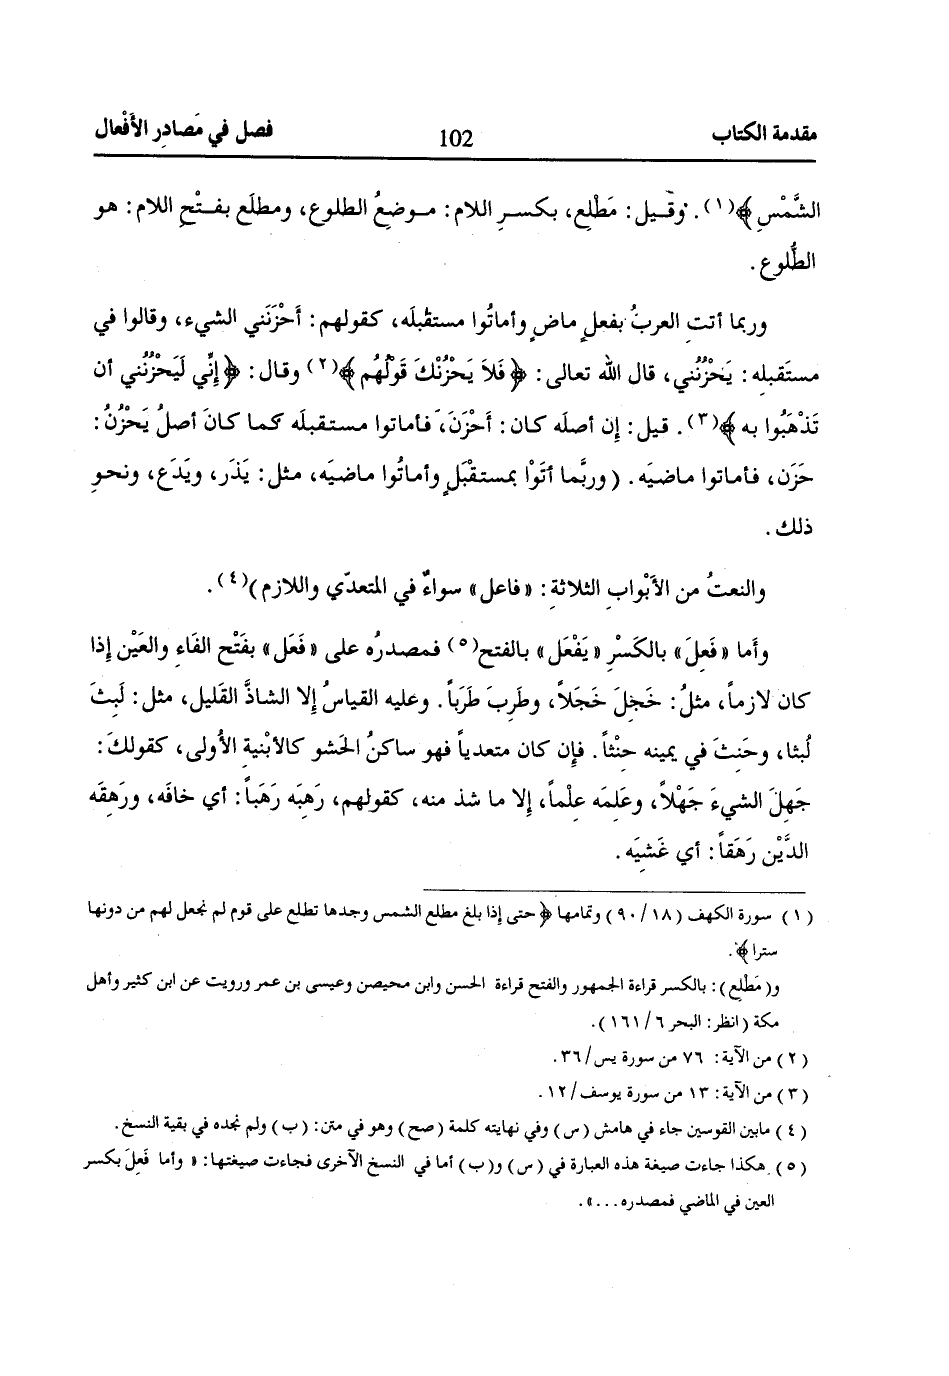 مقدمة الكتاب 102 فصل في مَصادِر الأَفْعال
الشَّمْسِ ﴾(١). وقيل: مَطْلِع، بكسرِ اللام: موضعُ الطلوع، ومطلَع بفتْحِ اللام: هو
الطُّلوع.
وربما أتتِ العربُ بفعلٍ ماضٍ وأماتُوا مستقْبلَه، كقولهم: أَحْزَنَني الشيء، وقالوا في
مستَقبلِه: يَحْزُنُني، قال الله تعالى: ﴿ فَلاَ يَحْزُنْكَ قَوْلُهُم ﴾(٢) وقال: ﴿ إِنِّي لَيَحْزُنُني أن
تَذْهَبُوا به ﴾(٣). قيل: إن أصلَه كان: أَحْزَنَ، فأماتوا مستقبلَه كما كانَ أصلُ يَحْزُنُ:
حَزَن، فأماتوا ماضيَه. ( وربَّما أتَوْا بمستقْبَلٍ وأماتُوا ماضيَه، مثل: يَذَر، ويَدَع، ونحوِ
ذلك.
والنعتُ من الأَبْوابِ الثلاثةِ: «فاعل» سواءٌ في المتعدّي واللازم)(٤).
وأما «فَعِلَ» بالكَسْرِ «يَفْعَل» بالفتح(٥) فمصدرُه على «فَعَل» بفَتْح الفَاء والعَيْن إذا
كان لازماً، مثلُ: خَجِلَ خَجَلاً، وطَرِبَ طَرَباً. وعليه القياسُ إلا الشاذَّ القَليل، مثل: لَبِثَ
لُبثا، وحَنِثَ في يمينه حِنْثاً. فإن كان متعدياً فهو ساكنُ الحَشو كالأبْنية الأُولى، كقولكَ:
جَهِلَ الشيءَ جَهْلاً، وعَلِمَه عِلْماً، إلا ما شذ منه، كقولهم، رَهِبَه رَهَباً: أي خافَه، ورَهِقَه
الدَّيْن رَهَقاً: أي غَشِيَه.
(١) سورة الكهف (١٨/ ٩٠) وتمامها ﴿ حتى إذا بلغ مطلع الشمس وجدها تطلع على قوم لم نجعل لهم من دونها
سترا ﴾.
و(مَطْلِع): بالكسر قراءة الجمهور والفتح قراءة الحسن وابن محيصن وعيسى بن عمر ورويت عن ابن كثير وأهل
مكة (انظر: البحر ٦/ ١٦١).
(٢) من الآية: ٧٦ من سورة يس/٣٦.
(٣) من الآية: ١٣ من سورة يوسف/١٢.
(٤) مابين القوسين جاء في هامش (س) وفي نهايته كلمة (صح) وهو في متن: (ب) ولم نجده في بقية النسخ.
(٥) هكذا جاءت صيغة هذه العبارة في (س) و(ب) أما في النسخ الآخرى فجاءت صيغتها: «وأما فَعِلَ بكسر
العين في الماضي فمصدره...».